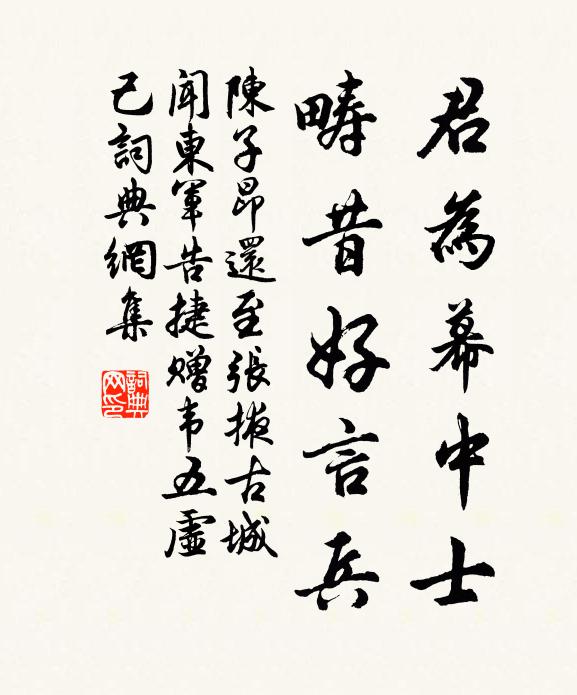 君為幕中士
疇昔好言兵
陳子昂還至張掖古城
聞東軍告捷贈韦五虛
己詞典網集
詞典网印